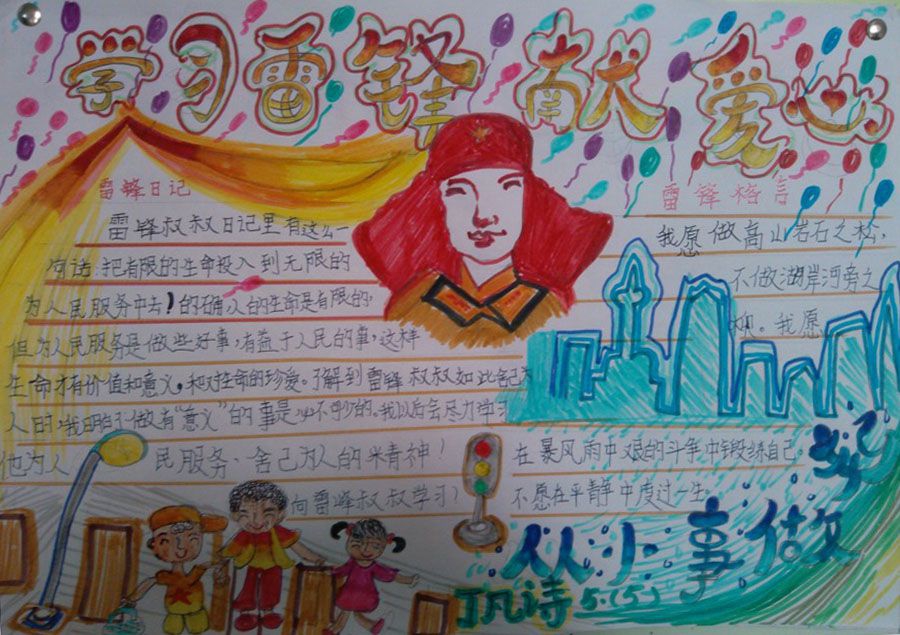 学习雷锋 献爱心
雷锋日记
雷锋叔叔日记里有这么一
句话:把有限的生命投入到无限的
为人民服务中去!的确,人的生命是有限的,
但为人民服务是做些好事,有益于人民的事,这样
生命才有价值和意义,和对生命的珍爱。了解到雷锋叔叔如此舍己为
人时,我明白了做有“意义”的事是必不可少的。我以后会尽力学习
他为人民服务、舍己为人的精神!
向雷锋叔叔学习)
雷锋格言
我愿做高山岩石之松,
不做湖岸河旁之
柳。我愿
在暴风雨中艰的斗争中锻练自己,
不愿在平静中度过一生。
从小事做
丁凡诗 5.(5)